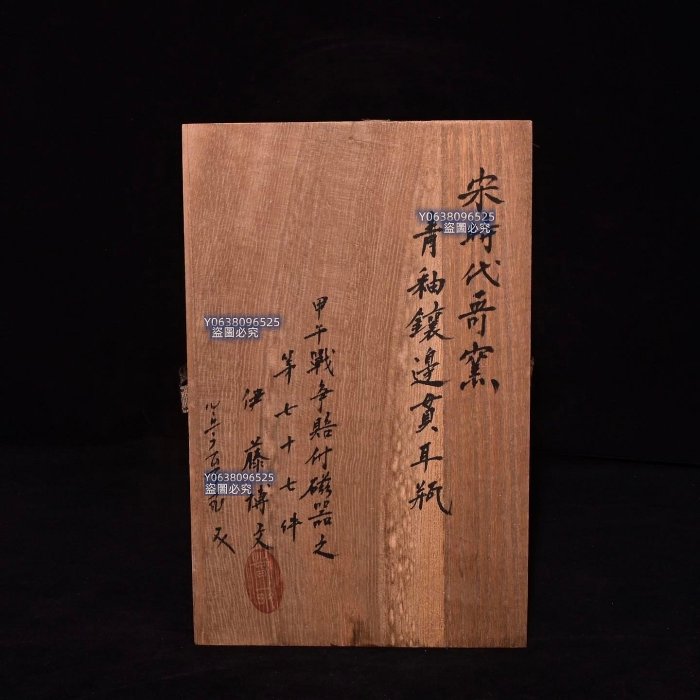 宋時代哥窯
青釉鑲邊貫耳瓶
甲午戰爭賠付磁器之
第七十七件
伊藤博文
Y0638096525
盜圖必究
Y0638096525
盜圖必究
Y0638096525
盜圖必究